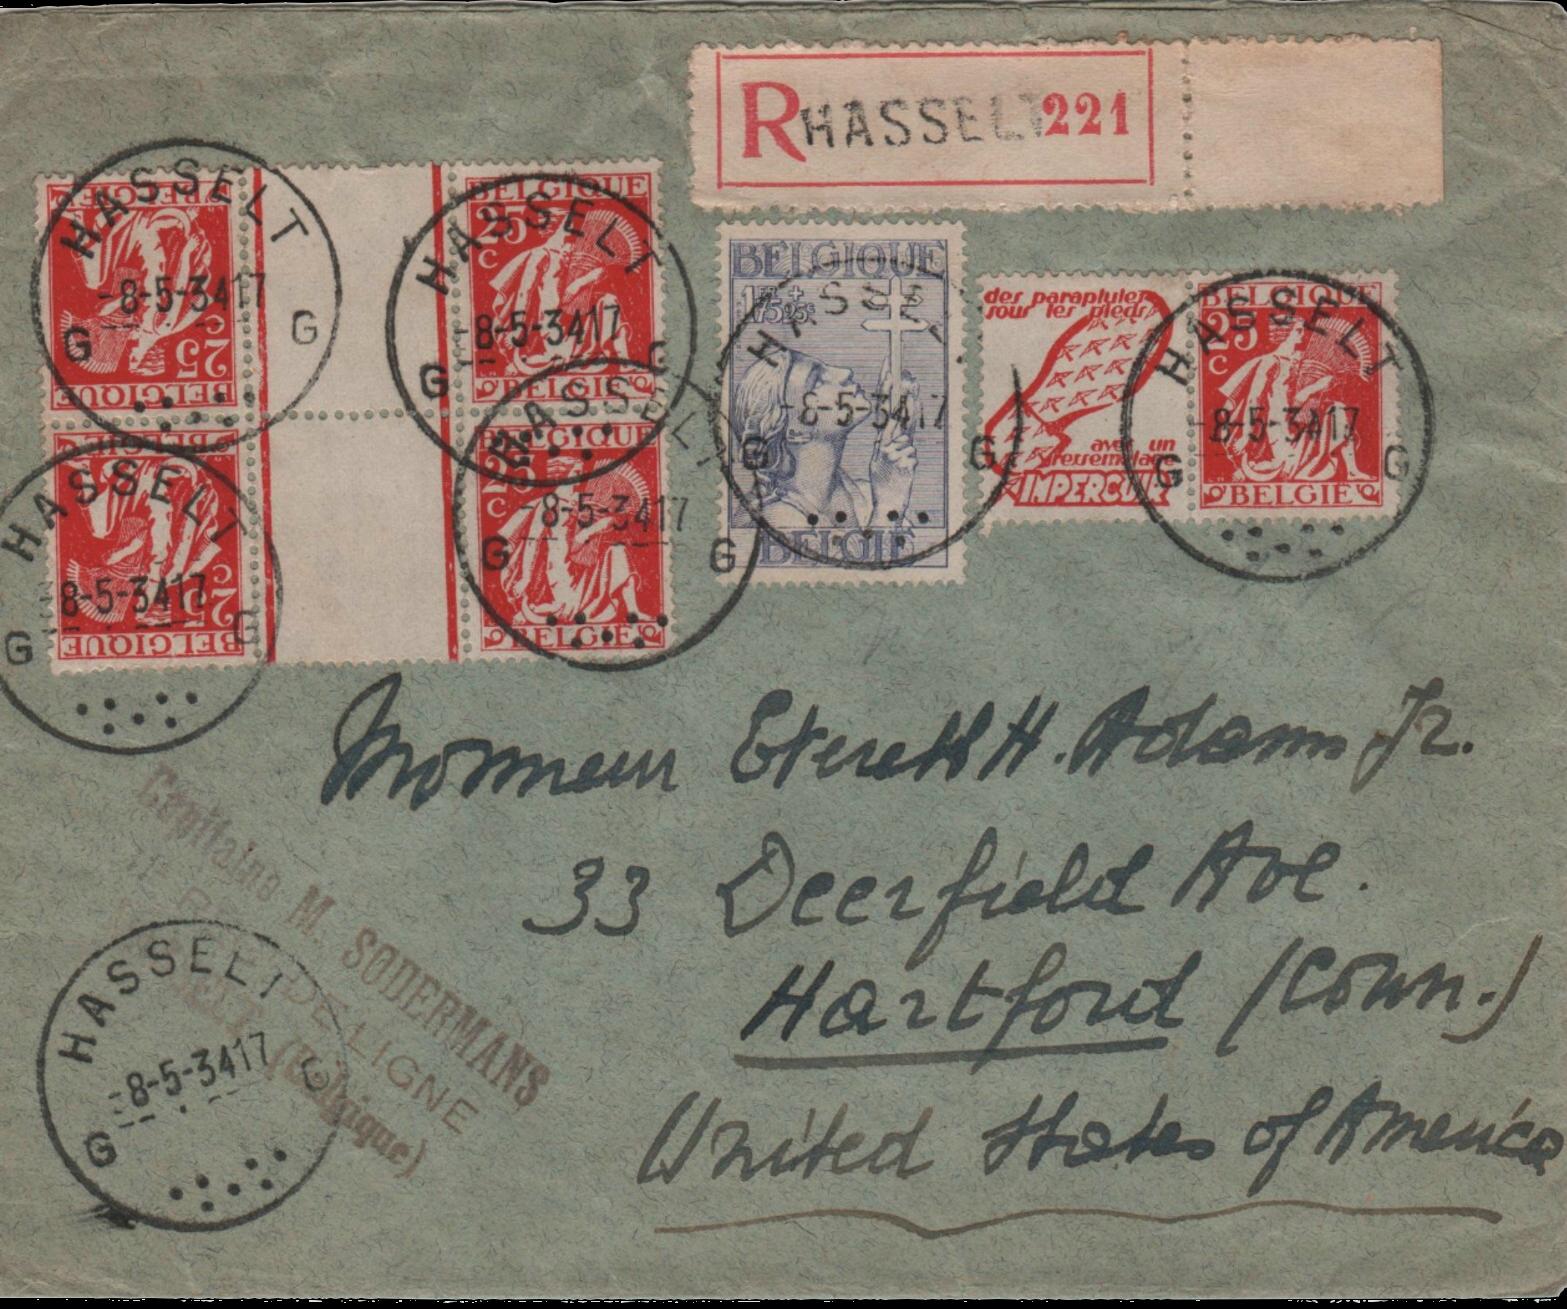 R HASSELT 221
BELGIQUE
25 C
BELGIQUE
25 C
BELGIQUE
25 C
BELGIE
BELGIQUE
25 C
BELGIE
BELGIQUE
1F75+25c
BELGIE
des parapluies
sous les pieds
avec un
IMPERCUIR
BELGIQUE
25 C
BELGIE
HASSELT
-8-5-34 17
G G
HASSELT
-8-5-34 17
G G
HASSELT
8-5-34 17
G G
HASSELT
-8-5-34 17
G G
HASSELT
-8-5-34 17
G G
HASSELT
-8-5-34 17
G G
Monsieur Everett H. Adams Jr.
33 Deerfield Ave.
Hartford (Conn.)
United States of America
Capitaine M. SODERMANS
DE LIGNE
(Belgique)
HASSELT
-8-5-34 17
G G